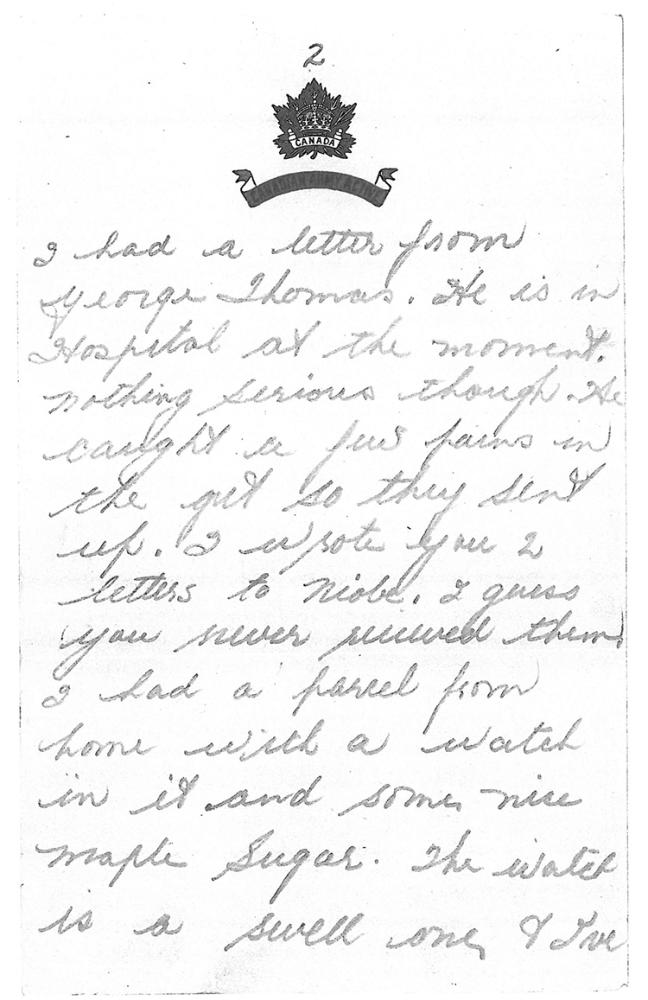 2
CANADA
CANADIAN ARMY ACTIVE
I had a letter from
George Thomas. He is in
Hospital at the moment.
nothing serious though. He
caught a few pains in
the gut so they sent
up. I wrote you 2
letters to Niobe. I guess
you never received them.
I had a parcel from
home with a watch
in it and some nice
maple sugar. The watch
is a swell one, & I've